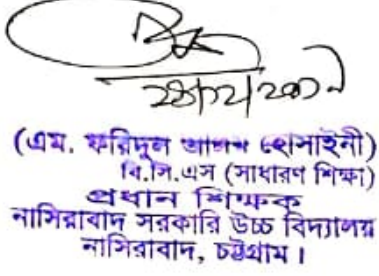 (এম. ফরিদুল আলম হোসাইনী)
বি.সি.এস (সাধারণ শিক্ষা)
প্রধান শিক্ষক
নাসিরাবাদ সরকারি উচ্চ বিদ্যালয়
নাসিরাবাদ, চট্টগ্রাম।